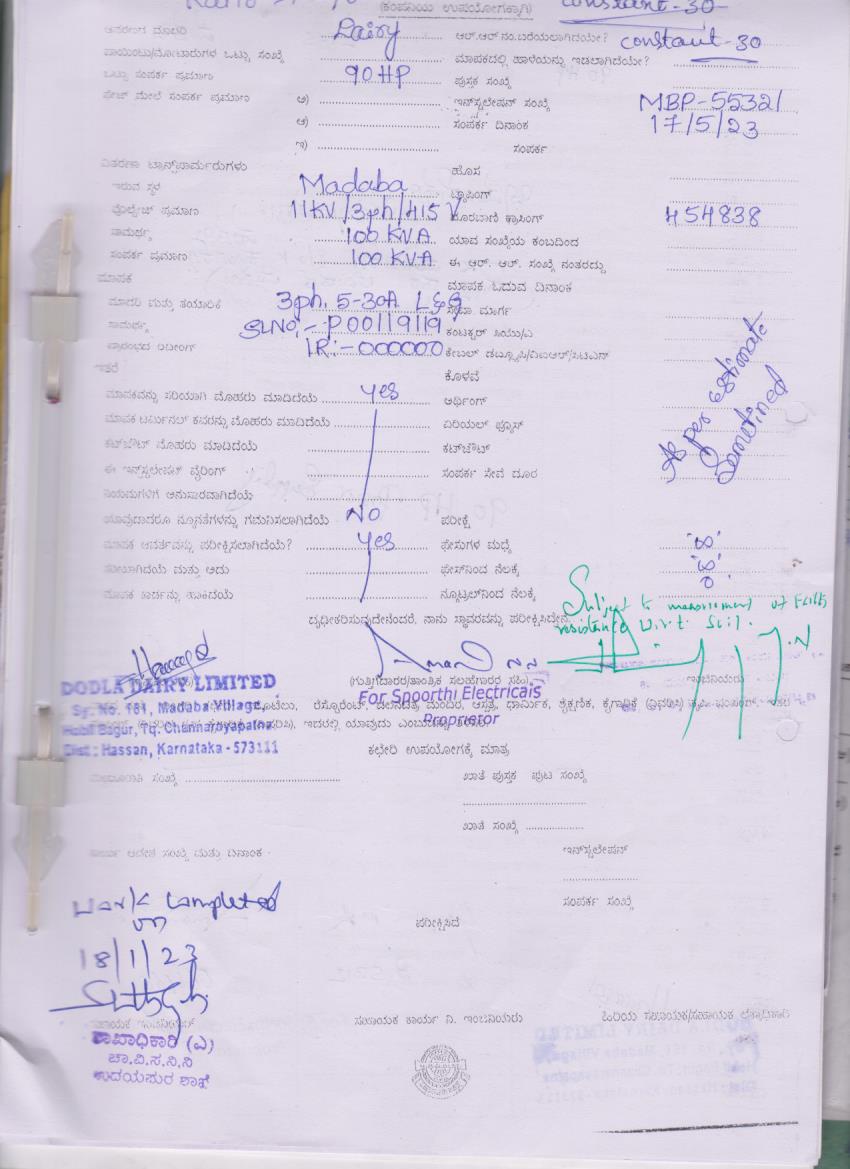 (ಕಂಪನಿಯ ಉಪಯೋಗಕ್ಕಾಗಿ) constant-30
Dairy ಆರ್.ಆರ್.ನಂ.ಬರೆಯಲಾಗಿದೆಯೇ? constant-30
ಪಾಯಿಂಟು/ಮೋಟಾರುಗಳ ಒಟ್ಟು ಸಂಖ್ಯೆ ಮಾಪಕದಲ್ಲಿ ಹಾಳೆಯನ್ನು ಇಡಲಾಗಿದೆಯೇ?
ಒಟ್ಟು ಸಂಪರ್ಕ ಪ್ರಮಾಣ 90 HP ಪುಸ್ತಕ ಸಂಖ್ಯೆ
ಮೇಲೆ ಸಂಪರ್ಕ ಪ್ರಮಾಣ ಅ) ಇನ್‌ಸ್ಟಲೇಷನ್ ಸಂಖ್ಯೆ MBP-5532/
ಆ) ಸಂಪರ್ಕ ದಿನಾಂಕ 17/5/23
ಇ) ಸಂಪರ್ಕ
ವಿತರಣಾ ಟ್ರಾನ್ಸ್‌ಫಾರ್ಮರುಗಳು ಹೊಸ
ಇರುವ ಸ್ಥಳ Madaba ಟ್ಯಾಪಿಂಗ್
ವೋಲ್ಟೇಜ್ ಪ್ರಮಾಣ 11KV/3ph/415 V ಕ್ರಾಸಿಂಗ್ 454838
ಸಾಮರ್ಥ್ಯ 100 KVA ಯಾವ ಸಂಖ್ಯೆಯ ಕಂಬದಿಂದ
ಸಂಪರ್ಕ ಪ್ರಮಾಣ 100 KVA ಈ ಆರ್. ಆರ್. ಸಂಖ್ಯೆ ನಂತರದ್ದು
ಮಾಪಕ ಮಾಪಕ ಓದುವ ದಿನಾಂಕ
ಮಾದರಿ ಮತ್ತು ತಯಾರಿಕೆ 3ph. 5-30A L&G ಮಾರ್ಗ
ಸಾಮರ್ಥ್ಯ SLNO:- P00119119 ಕಂಡಕ್ಟರ್ ಸಿಯು/ಎ
ಪ್ರಾರಂಭದ ರೀಡಿಂಗ್ IR:- 000000 ಕೇಬಲ್
ಇತರೆ ಕೊಳವೆ
As per estimate
ಮಾಪಕವನ್ನು ಸರಿಯಾಗಿ ಮೊಹರು ಮಾಡಿದೆಯೆ yes ಅರ್ಥಿಂಗ್
ಮಾಪಕ ಟರ್ಮಿನಲ್ ಕವರನ್ನು ಮೊಹರು ಮಾಡಿದೆಯೆ ಏರಿಯಲ್ ಫ್ಯೂಸ್
ಕಟ್‌ಔಟ್ ಮೊಹರು ಮಾಡಿದೆಯೆ ಕಟ್‌ಔಟ್
ಈ ಇನ್‌ಸ್ಟಲೇಷನ್ ವೈರಿಂಗ್ ಸಂಪರ್ಕ ಸೇವೆ ದೂರ
ನಿಯಮಗಳಿಗೆ ಅನುಸಾರವಾಗಿದೆಯೆ
ಯಾವುದಾದರೂ ನ್ಯೂನತೆಗಳನ್ನು ಗಮನಿಸಲಾಗಿದೆಯೆ NO ಪರೀಕ್ಷೆ
ಮಾಪಕ ಆವರ್ತವನ್ನು ಪರೀಕ್ಷಿಸಲಾಗಿದೆಯೆ? yes ಫೇಸುಗಳ ಮಧ್ಯೆ '∞'
ಸರಿಯಾಗಿದೆಯೆ ಮತ್ತು ಅದು ಫೇಸ್‌ನಿಂದ ನೆಲಕ್ಕೆ '∞'
ಮಾಪಕ ಕಾರ್ಡನ್ನು ಹಾಕಿದೆಯೆ ನ್ಯೂಟ್ರಲ್‌ನಿಂದ ನೆಲಕ್ಕೆ 0
ದೃಢೀಕರಿಸುವುದೇನೆಂದರೆ, ನಾನು ಸ್ಥಾವರವನ್ನು ಪರೀಕ್ಷಿಸಿದ್ದೇನೆ
Subject to measurement of Earth
resistance
DODLA DAIRY LIMITED
Sy. No. 181, Madaba Village,
Hobli Bagur, Tq. Channarayapatna
Dist : Hassan, Karnataka - 573111
(ಗುತ್ತಿಗೆದಾರರ/ತಾಂತ್ರಿಕ ಸಲಹೆಗಾರರ ಸಹಿ)
For Spoorthi Electricals
Proprietor
ಕಛೇರಿ ಉಪಯೋಗಕ್ಕೆ ಮಾತ್ರ
ಸಂಖ್ಯೆ ಖಾತೆ ಪುಸ್ತಕ ಪುಟ ಸಂಖ್ಯೆ
ಖಾತೆ ಸಂಖ್ಯೆ
ಕಾರ್ಯ ಆದೇಶ ಸಂಖ್ಯೆ ಮತ್ತು ದಿನಾಂಕ ಇನ್‌ಸ್ಟಲೇಷನ್
ಸಂಪರ್ಕ ಸಂಖ್ಯೆ
Work Completed
on
18/1/23
ಪರೀಕ್ಷಿಸಿದೆ
ಸಹಾಯಕ ಇಂಜಿನಿಯರ್ ಸಹಾಯಕ ಕಾರ್ಯ ನಿ. ಇಂಜಿನಿಯರು
ಶಾಖಾಧಿಕಾರಿ (ವಿ)
ಚಾ.ವಿ.ಸ.ನಿ.ನಿ
ಉದಯಪುರ ಶಾಖೆ